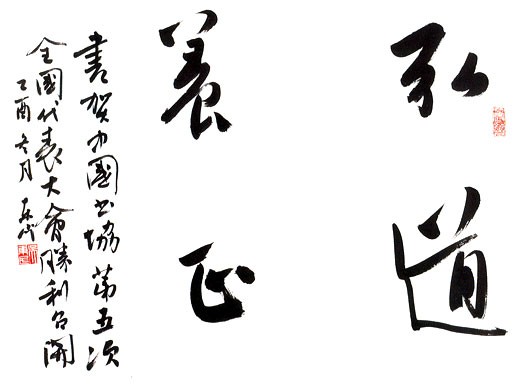 弘道
養正
書賀中國書協第五次
全國代表大會勝利召開
乙酉冬月